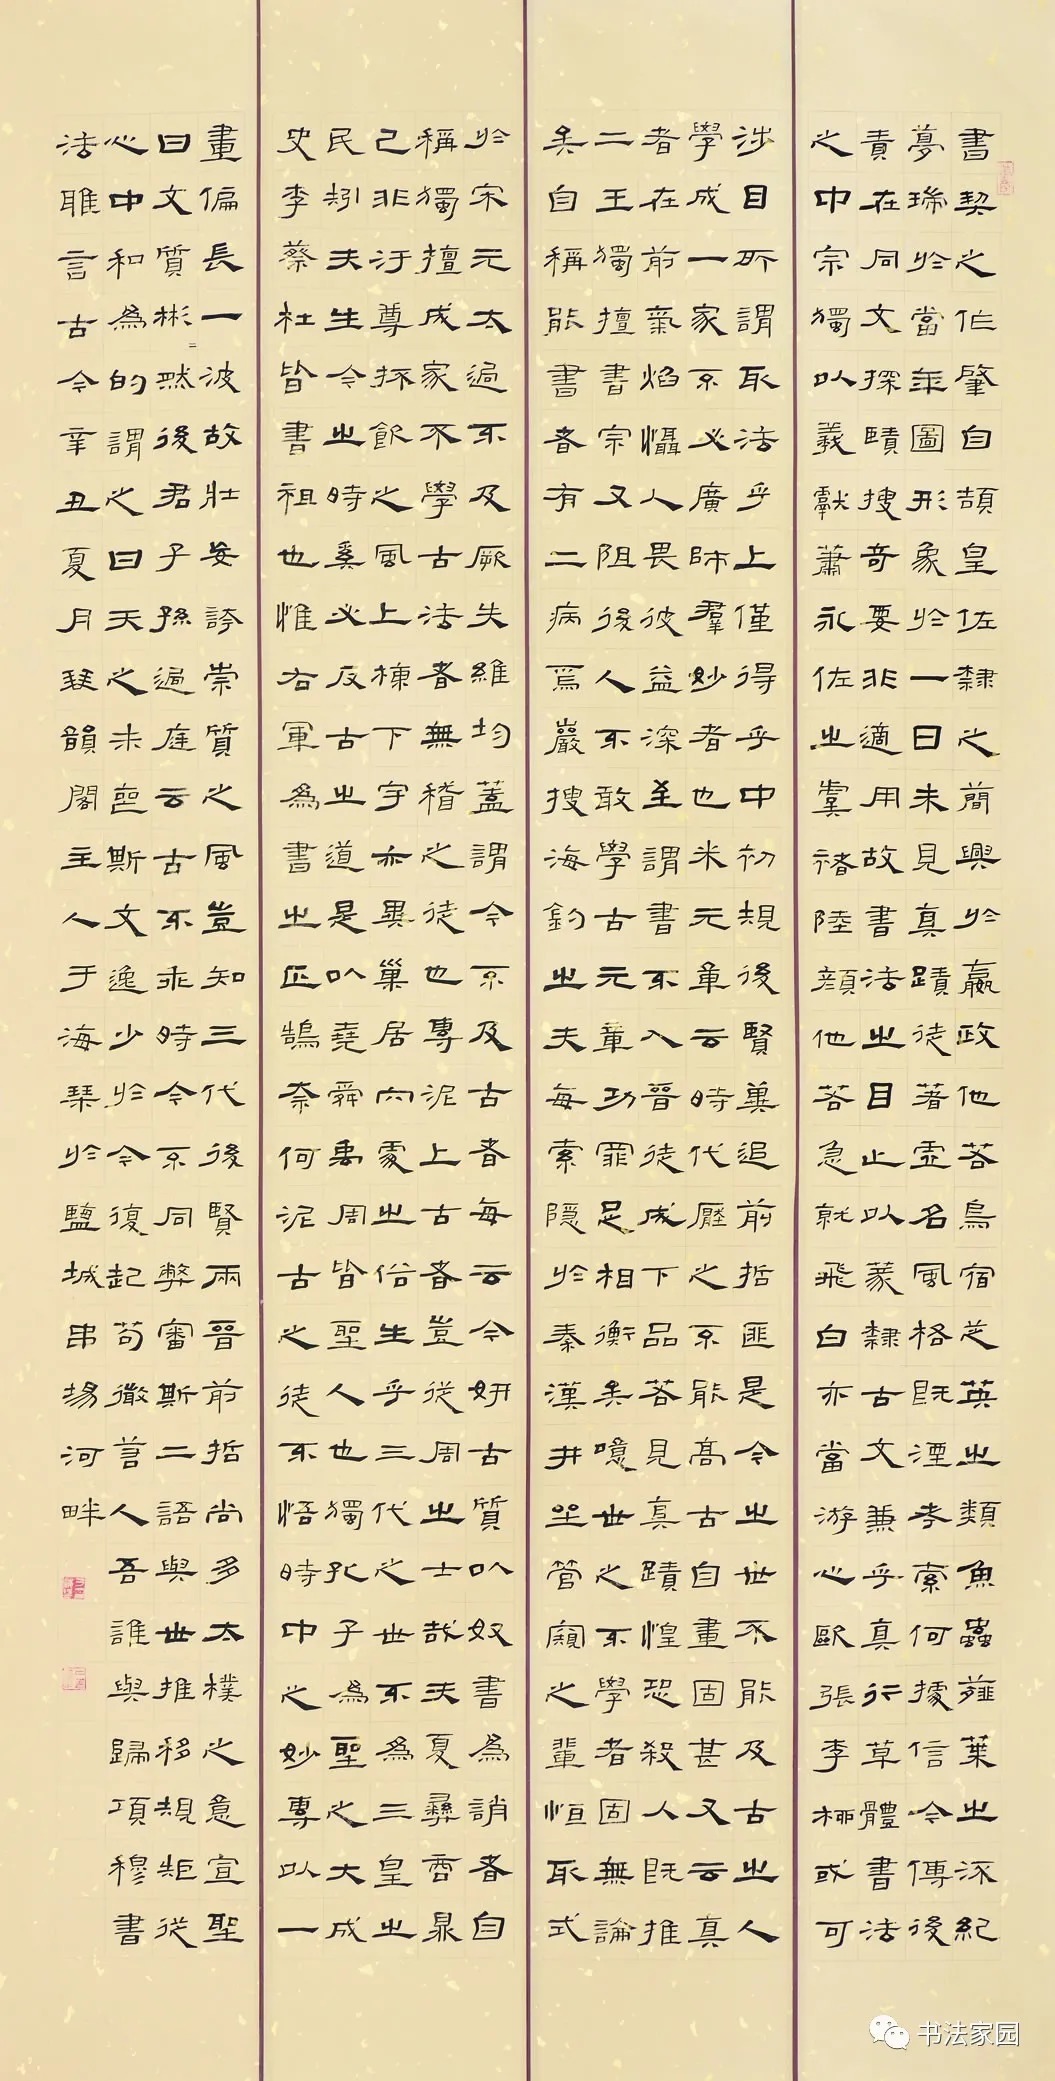 書契之作肇自頡皇佐隸之簡興於嬴政他若鳥宿芝英之類魚蟲薤葉之流紀
夢瑞於當年圖形象於一日未見真蹟徒著虛名風格既湮考索何據信今傳後
責在同文探賾搜奇要非適用故書法之目止以篆隸古文兼乎真行草體書法
之中宗獨以羲獻蕭永佐之虞褚陸顏他若急就飛白亦當游心歐張李柳或可
涉目所謂取法乎上僅得乎中初規後賢冀追前哲匪是今之世不能及古之人
學成一家不必廣師羣妙者也米元章云時代壓之不能高古自畫固甚又云真
者在前氣焰懾人畏彼益深至謂書不入晉徒成下品若見真蹟惶恐殺人既推
二王獨擅書宗又阻後人不敢學古元章功罪足相衡矣噫世之不學者固無論
矣自稱能書者有二病焉巖搜海釣之夫每索隱於秦漢井坐管窺之輩恒取式
於宋元太過不及厥失維均蓋謂今不及古者每云今妍古質以奴書為誚者自
稱獨擅成家不學古法者無稽之徒也專泥上古者豈從周之士哉夫夏彝商鼎
已非汙尊抔飲之風上棟下宇亦異巢居穴處之俗生乎三代之世不為三皇之
民矧夫生今之時奚必反古之道是以堯舜禹周皆聖人也獨孔子為聖之大成
史李蔡杜皆書祖也惟右軍為書之正鵠奈何泥古之徒不悟時中之妙專以一
畫偏長一波故壯妄誇崇質之風豈知三代後賢兩晉前哲尚多太樸之意宣聖
曰文質彬=然後君子孫過庭云古不乖時今不同弊審斯二語與世推移規矩從
心中和為的謂之曰天之未喪斯文逸少於今復起苟微若人吾誰與歸項穆書
法雅言古今辛丑夏月琴韻閣主人于海琴於鹽城串場河畔
书法家园